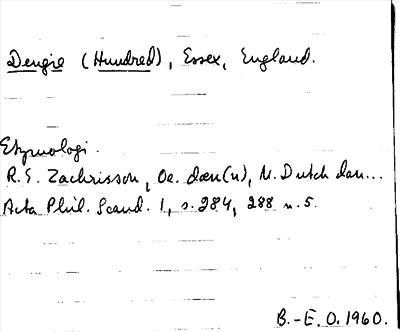 Dengie (Hundred), Essex, England.
Etymologi.
R.E. Zachrisson, Oe. dæn(n), M. Dutch dan...
Acta Phil. Scand. 1, s. 284, 288 n. 5.
B.-E. O. 1960.